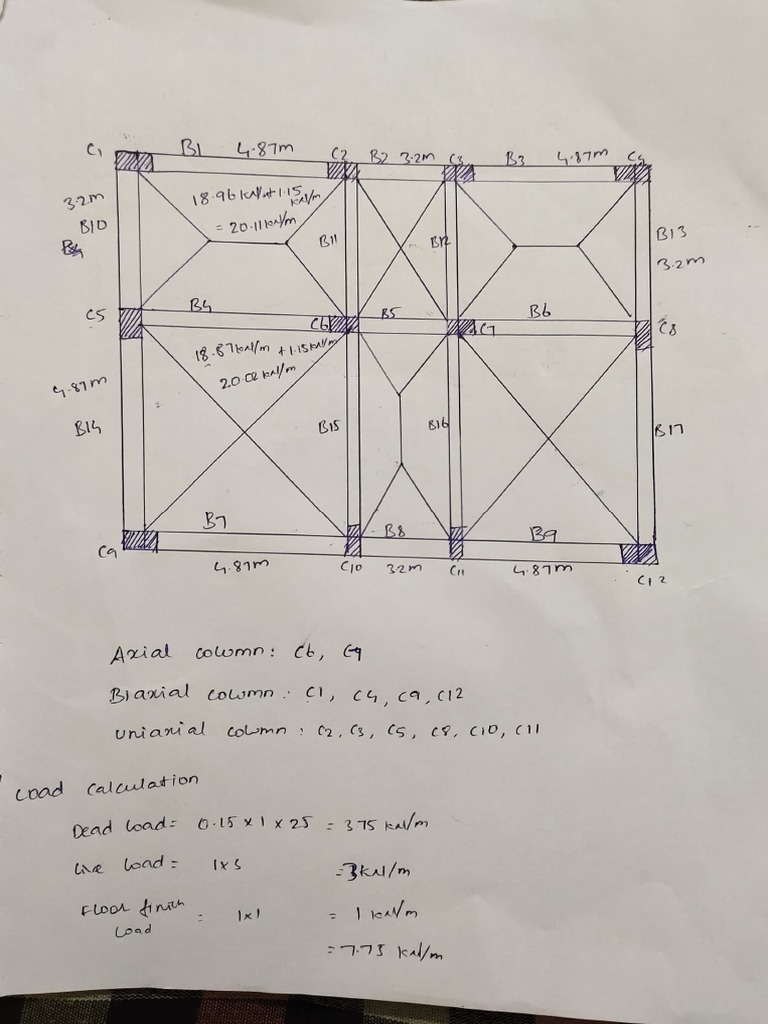 C1 B1 4.87m C2 B2 3.2m C3 B3 4.87m C4
3.2m
B10
18.96 kN/m + 1.15 kN/m
= 20.11 kN/m
B11
B12
B13
3.2m
C5 B4 C6 B5 C7 B6 C8
18.87 kN/m + 1.15 kN/m
20.02 kN/m
4.87m
B14
B15
B16
B17
B7 B8 B9
C9 4.87m C10 3.2m C11 4.87m C12
Axial column: C6, C7
Biaxial column: C1, C4, C9, C12
uniaxial column: C2, C3, C5, C8, C10, C11
Load calculation
Dead load = 0.15 x 1 x 25 = 3.75 kN/m
Live load = 1x3 = 3 kN/m
Floor finish load = 1x1 = 1 kN/m
= 7.75 kN/m